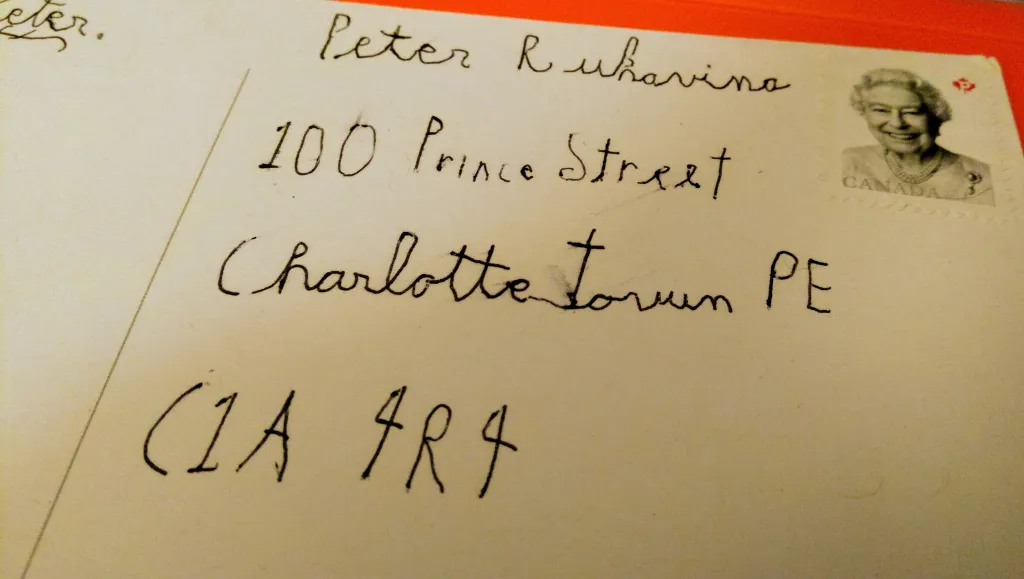 eter.
Peter Rukavina
100 Prince Street
Charlottetown PE
C1A 4R4
P
CANADA